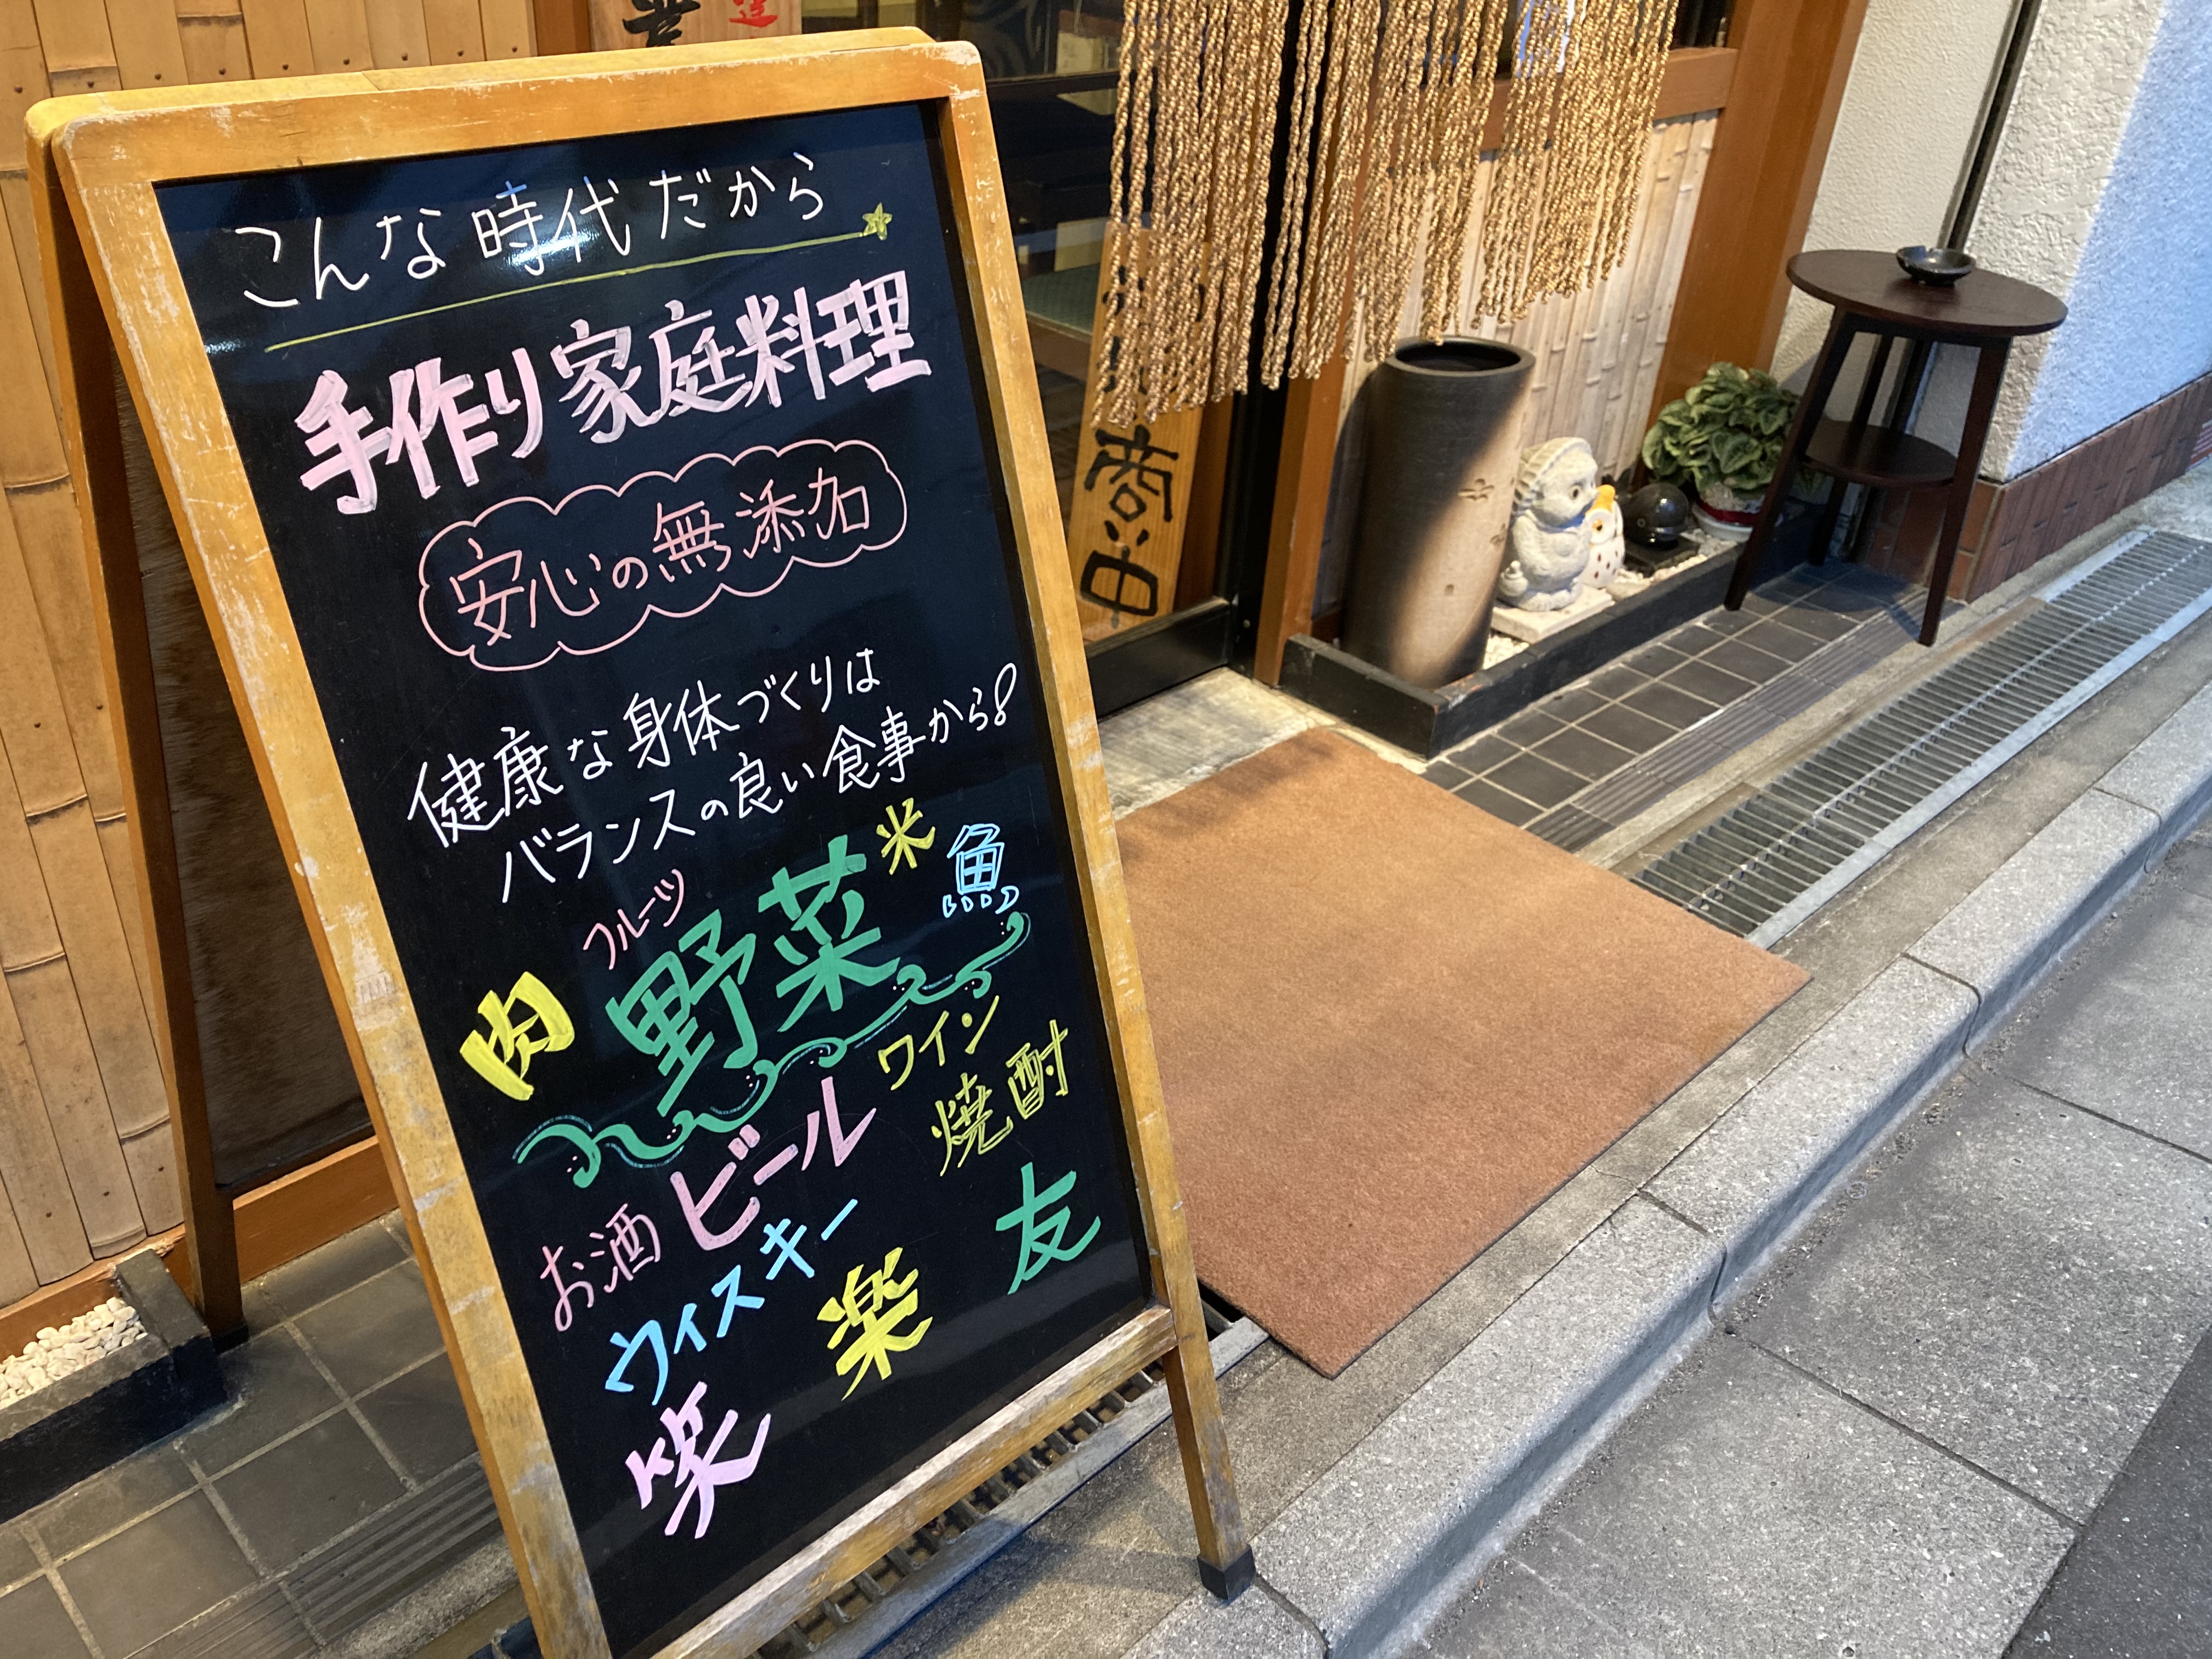 こんな時代だから
手作り家庭料理
安心の無添加
健康な身体づくりは
バランスの良い食事から!
フルーツ
米
魚
肉
野菜
ワイン
焼酎
お酒
ビール
ウィスキー
友
楽
笑
商い中